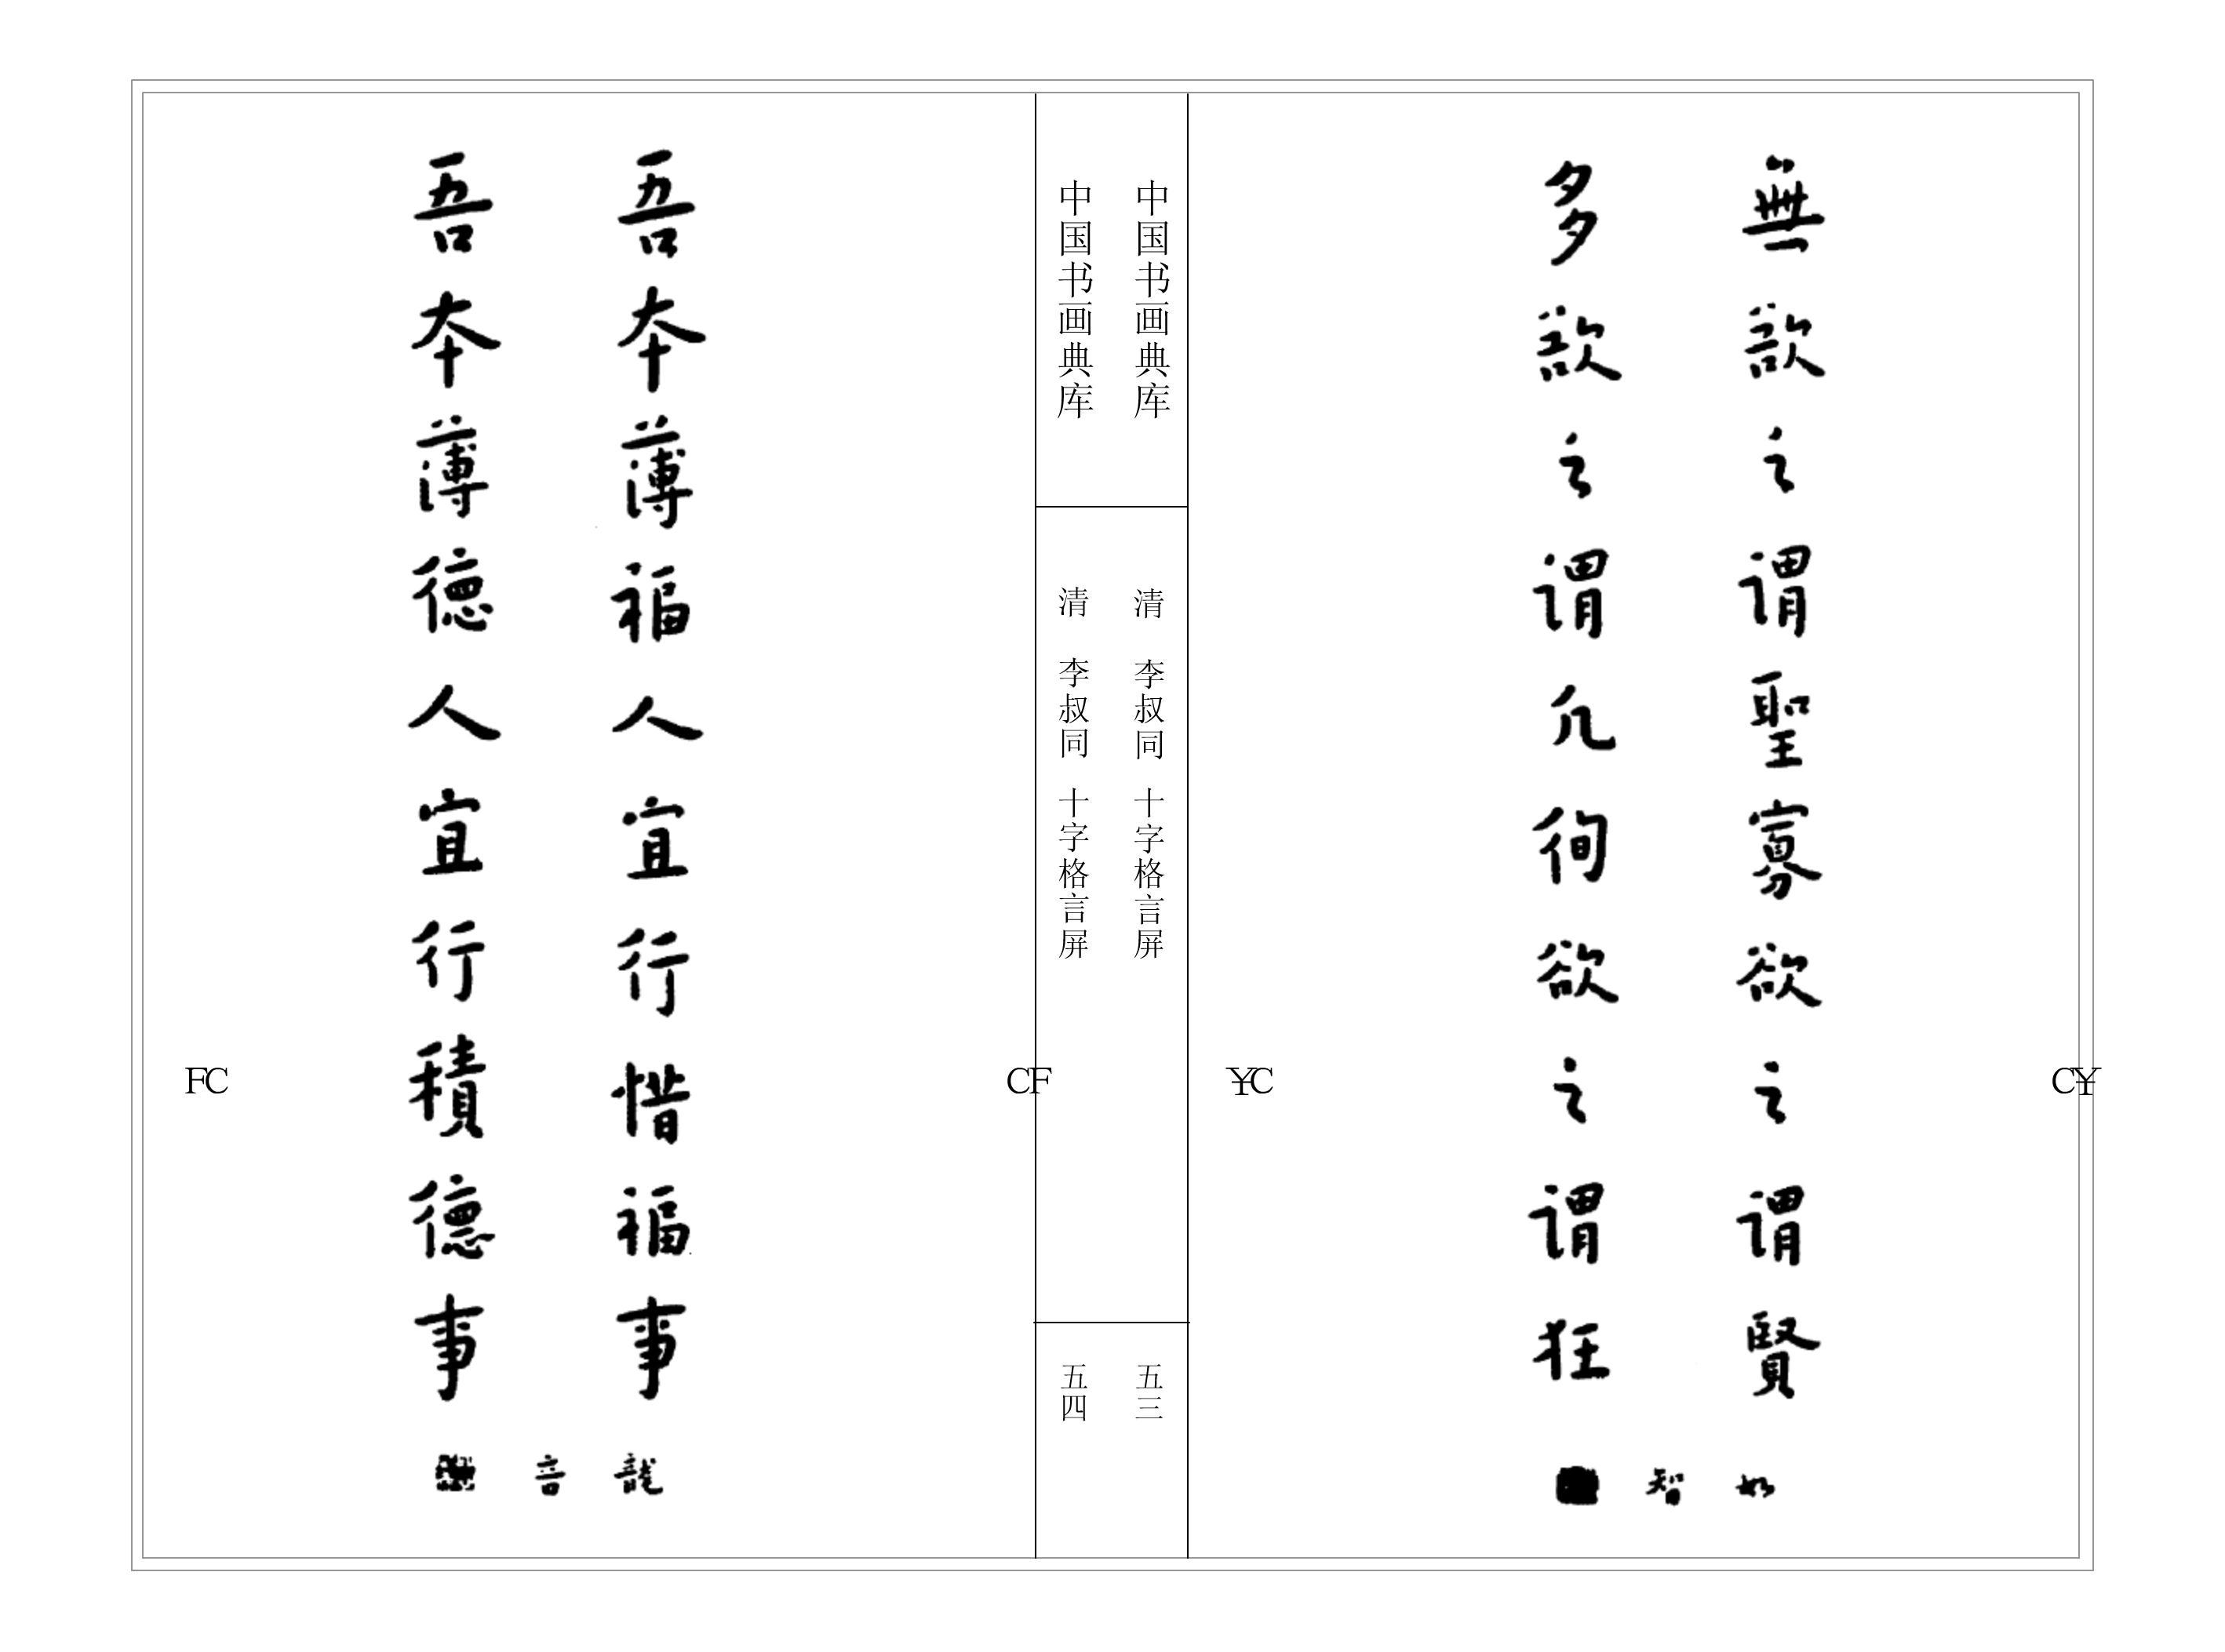 無欲之谓聖寡欲之谓賢
多欲之谓凡徇欲之谓狂
如智
中国书画典库
清 李叔同 十字格言屏
五三
中国书画典库
清 李叔同 十字格言屏
五四
吾本薄福人宜行惜福事
吾本薄德人宜行積德事
龍音
FC
CF
¥C
C¥